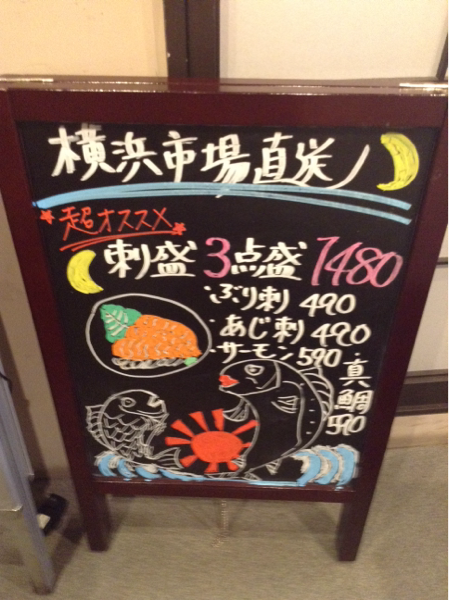 横浜市場直送!
超オススメ
刺盛 3点盛 1480
・ぶり刺 490
・あじ刺 490
・サーモン 590
真鯛 590